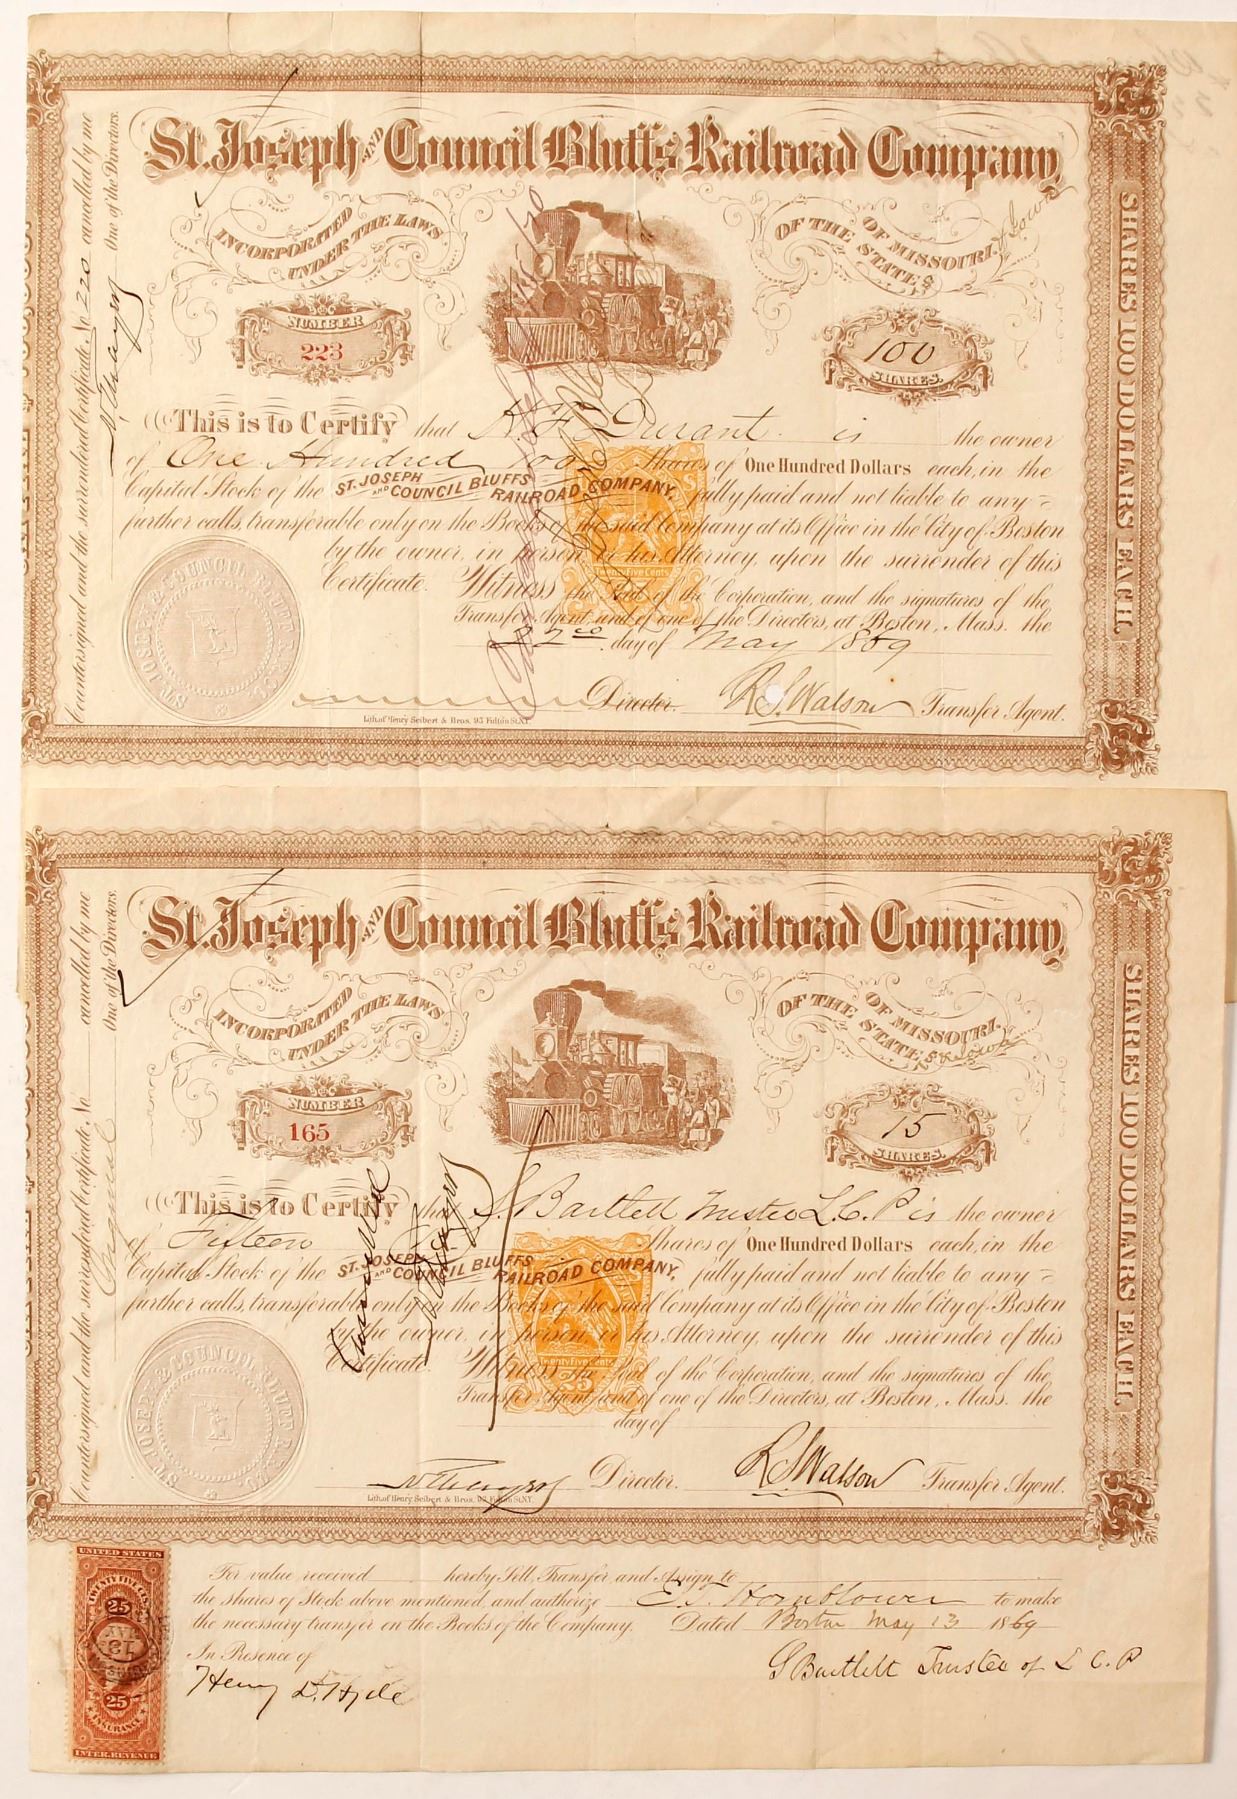 St. Joseph AND Council Bluffs Railroad Company,
INCORPORATED
UNDER THE LAWS
OF THE STATE
OF MISSOURI.
& Iowa
NUMBER
223
100
SHARES.
This is to Certify that H. F. Durant is the owner
of One Hundred Shares of One Hundred Dollars each, in the
Capital Stock of the ST. JOSEPH AND COUNCIL BLUFFS RAILROAD COMPANY, fully paid and not liable to any
further calls, transferable only on the Books of the said Company at its Office in the City of Boston
by the owner, in person, or his Attorney, upon the surrender of this
Certificate. Witness the Seal of the Corporation, and the signatures of the
Transfer Agent, and of one of the Directors, at Boston, Mass. the
day of May 1869
Director. R S Watson Transfer Agent.
Lith. of Henry Seibert & Bros. 93 Fulton St. N.Y.
Countersigned and the surrendered Certificate, No 220 cancelled by me
N. Thayer One of the Directors.
SHARES 100 DOLLARS EACH.
ST. JOSEPH & COUNCIL BLUFF R.R. CO.
Twenty Five Cents
St. Joseph AND Council Bluffs Railroad Company,
INCORPORATED
UNDER THE LAWS
OF THE STATE
OF MISSOURI.
& Iowa
NUMBER
165
15
SHARES.
This is to Certify that S. Bartlett Trustee L. C. P is the owner
of Fifteen Shares of One Hundred Dollars each, in the
Capital Stock of the ST. JOSEPH AND COUNCIL BLUFFS RAILROAD COMPANY, fully paid and not liable to any
further calls, transferable only on the Books of the said Company at its Office in the City of Boston
by the owner, in person, or his Attorney, upon the surrender of this
Certificate. Witness the Seal of the Corporation, and the signatures of the
Transfer Agent, and of one of the Directors, at Boston, Mass. the
day of
N Thayer Director. R S Watson Transfer Agent.
Lith. of Henry Seibert & Bros. 93 Fulton St. N.Y.
Countersigned and the surrendered Certificate, No cancelled by me
Original One of the Directors.
Cancelled
N Thayer
SHARES 100 DOLLARS EACH.
ST. JOSEPH & COUNCIL BLUFF R.R. CO.
Twenty Five Cents
25
UNITED STATES
TWENTY FIVE CTS.
25
25
INSURANCE
INTER. REVENUE
For value received hereby Sell, Transfer, and Assign to
the shares of Stock above mentioned, and authorize E. T. Hornblower to make
the necessary transfer on the Books of the Company. Dated Boston May 13 1869
In Presence of
Henry D. Hyde
S Bartlett Trustee of L C. P